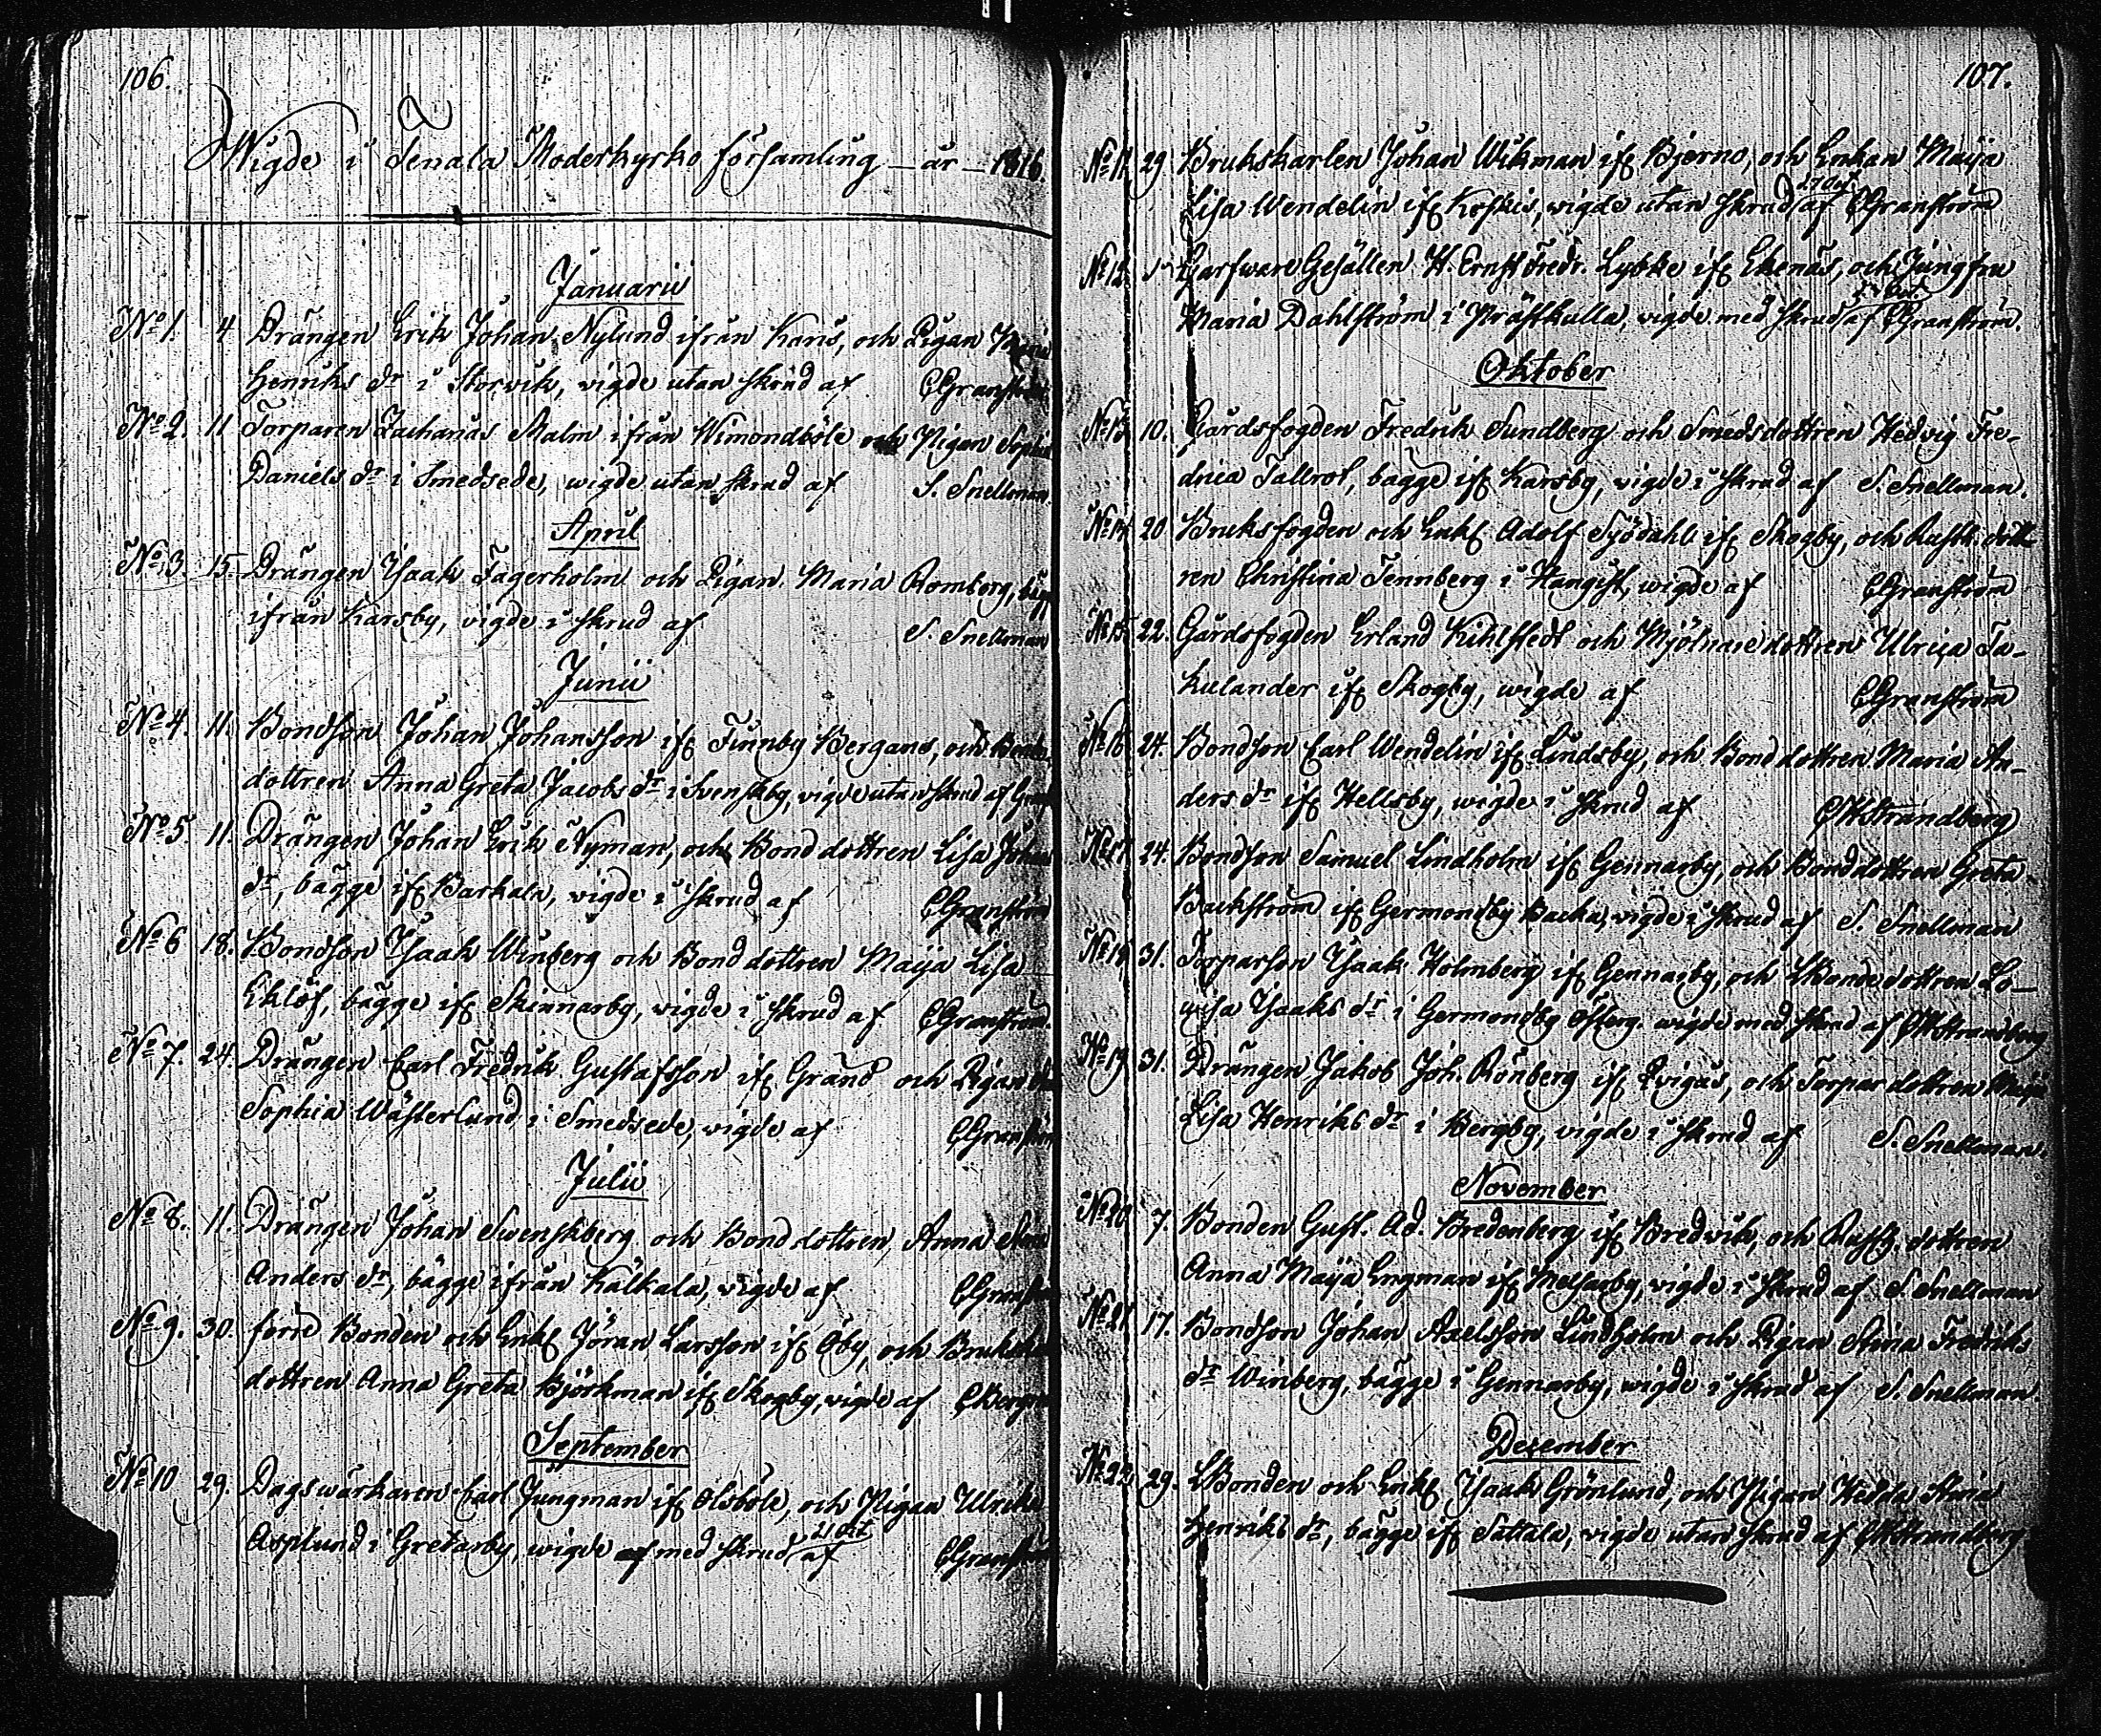 106.
Wigde i Tenala Moderkyrko församling år 1816.
Januarii
No 1. 4 Drängen Erik Johan Nylund ifrån Karis, och Pigan Maria
Henriks dr i Storvik, vigde utan skrud af CGranström
No 2. 11 Torparen Zacharias Malm ifrån Wimondböle och Pigan Sophia
Daniels dr i Smedsede, wigde utan skrud af S. Snellman.
April
No 3. 15. Drängen Isaak Fagerholm och Pigan Maria Romberg, bägge
ifrån Karsby, vigde i skrud af S. Snellman
Junii
No 4. 11. Bondson Johan Johansson if Finnby Bergans, och
dottren Anna Greta Jacobs dr i Svenskby, vigde utan skrud af
No 5. 11. Drängen Johan Erik Nyman, och Bonddottren Lisa Johans
dr, bägge if Barkala, vigde i skrud af CGranström
No 6 18. Bondson Isaak Winberg och Bonddottren Maija Lisa
Eklöf, bägge if Skinnarby, vigde i skrud af CGranström.
No 7. 24. Drängen Carl Fredrik Gustafsson if Gränd och Pigan
Sophia Wästerlund i Smedsede, vigde af CGranström
Julii
No 8. 11. Drängen Johan Swenskberg och Bonddottren Anna
Anders dr, bägge ifrån Kälkala, vigde af CGranström
No 9. 30. förre Bonden och Enkl Jöran Larsson if Öby, och
dottren Anna Greta Björkman if Skogby, vigde af
September
No 10 29. Dagswärkaren Carl Jungman if Olsböle, och Pigan Ulrika
Asplund i Gretarby, wigde af med skrud 21 Oct af CGranström
107.
No 11 29 Brukskarlen Johan Wikman if Bjerno, och Enkan Maija
Lisa Wendelin if Koskis, vigde utan skrud 27 Oct af CGranström
No 12. Garfware Gesällen H. Ernst Fredr. Lybke if Ekenäs, och Jungfru
Maria Dahlström i Prästkulla, vigde med skrud af CGranström.
Oktober
No 13 10. Gårdsfogden Fredrik Sundberg och Smedsdottren Hedvig Fre-
drica Tallrot, bägge if Karsby, vigde i skrud af S. Snellman.
No 14 20 Bruksfogden och Enkl Adolf Sjödahl if Skogby, och Rusth. dott-
ren Christina Tennberg i Hangist, wigde af CGranström
No 15 22. Gårdsfogden Erland Kihlstedt och Mjölnaredottren Ulrica Ta-
kulander if Skogby, wigde af CGranström
No 16 24. Bondson Carl Wendelin if Lindsby, och Bonddottren Maria An-
ders dr if Hellsby, wigde i skrud af CWStrandberg
No 17 24. Bondson Samuel Lindholm if Gennarby, och Bonddottren Greta
Backström if Germondby Backa, vigde i skrud af S. Snellman
No 18 31. Torparson Isaak Holmberg if Gennarby, och LBondedottren Lo-
visa Isaaks dr i Germondby wigde med skrud af CWStrandberg
No 19 31. Drängen Jakob Joh. Rönberg if Qvigås, och Torpardottren Maija
Lisa Henriks dr i Bergby, vigde i skrud af S. Snellman.
November
No 20 7. Bonden Gust. Ad. Bredenberg if Bredvik, och Rusth. dottren
Anna Maija Engman if Melsarby, vigde i skrud af S. Snellman
No 21 17. Bondson Johan Axelsson Lindholm och Pigan Stina Fredriks
dr Winberg, bägge i Gennarby, wigde i skrud af S. Snellman.
Dezember
No 22 29. LBonden och Enkl Isaak Grönlund, och Pigan Hedda Stina
Henriks dr, bägge if Sattala, vigde utan skrud af CWStrandberg